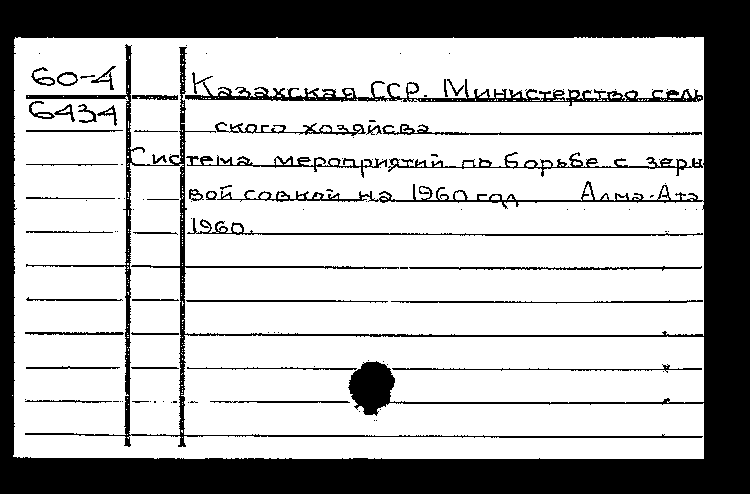 60-4
6434
Казахская ССР. Министерство сель
ского хозяйсва
Система мероприятий по борьбе с зерн
вой совкой на 1960 год Алма-Ата
1960.